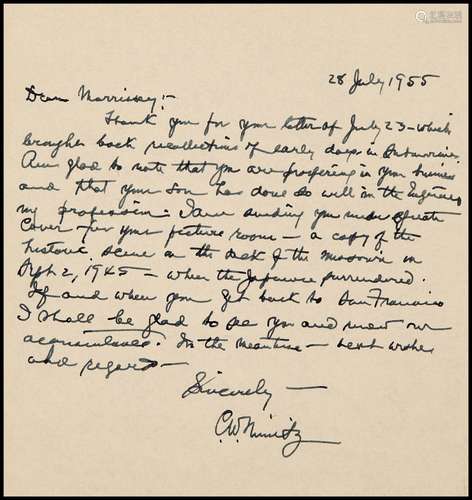 28 July 1955
Dear Morrissey:-
Thank you for your letter of July 23 - which
brought back recollections of early days in Submarines.
Am glad to note that you are prospering in your business
and that your son has done so well in the Engineering
profession - I am sending you under separate
cover - for your picture room - a copy of the
historic scene on the deck of the Missouri on
Sept 2, 1945 - when the Japanese surrendered.
If and when you get back to San Francisco
I shall be glad to see you and renew our
acquaintance. In the meantime - best wishes
and regards -
Sincerely -
C.W. Nimitz